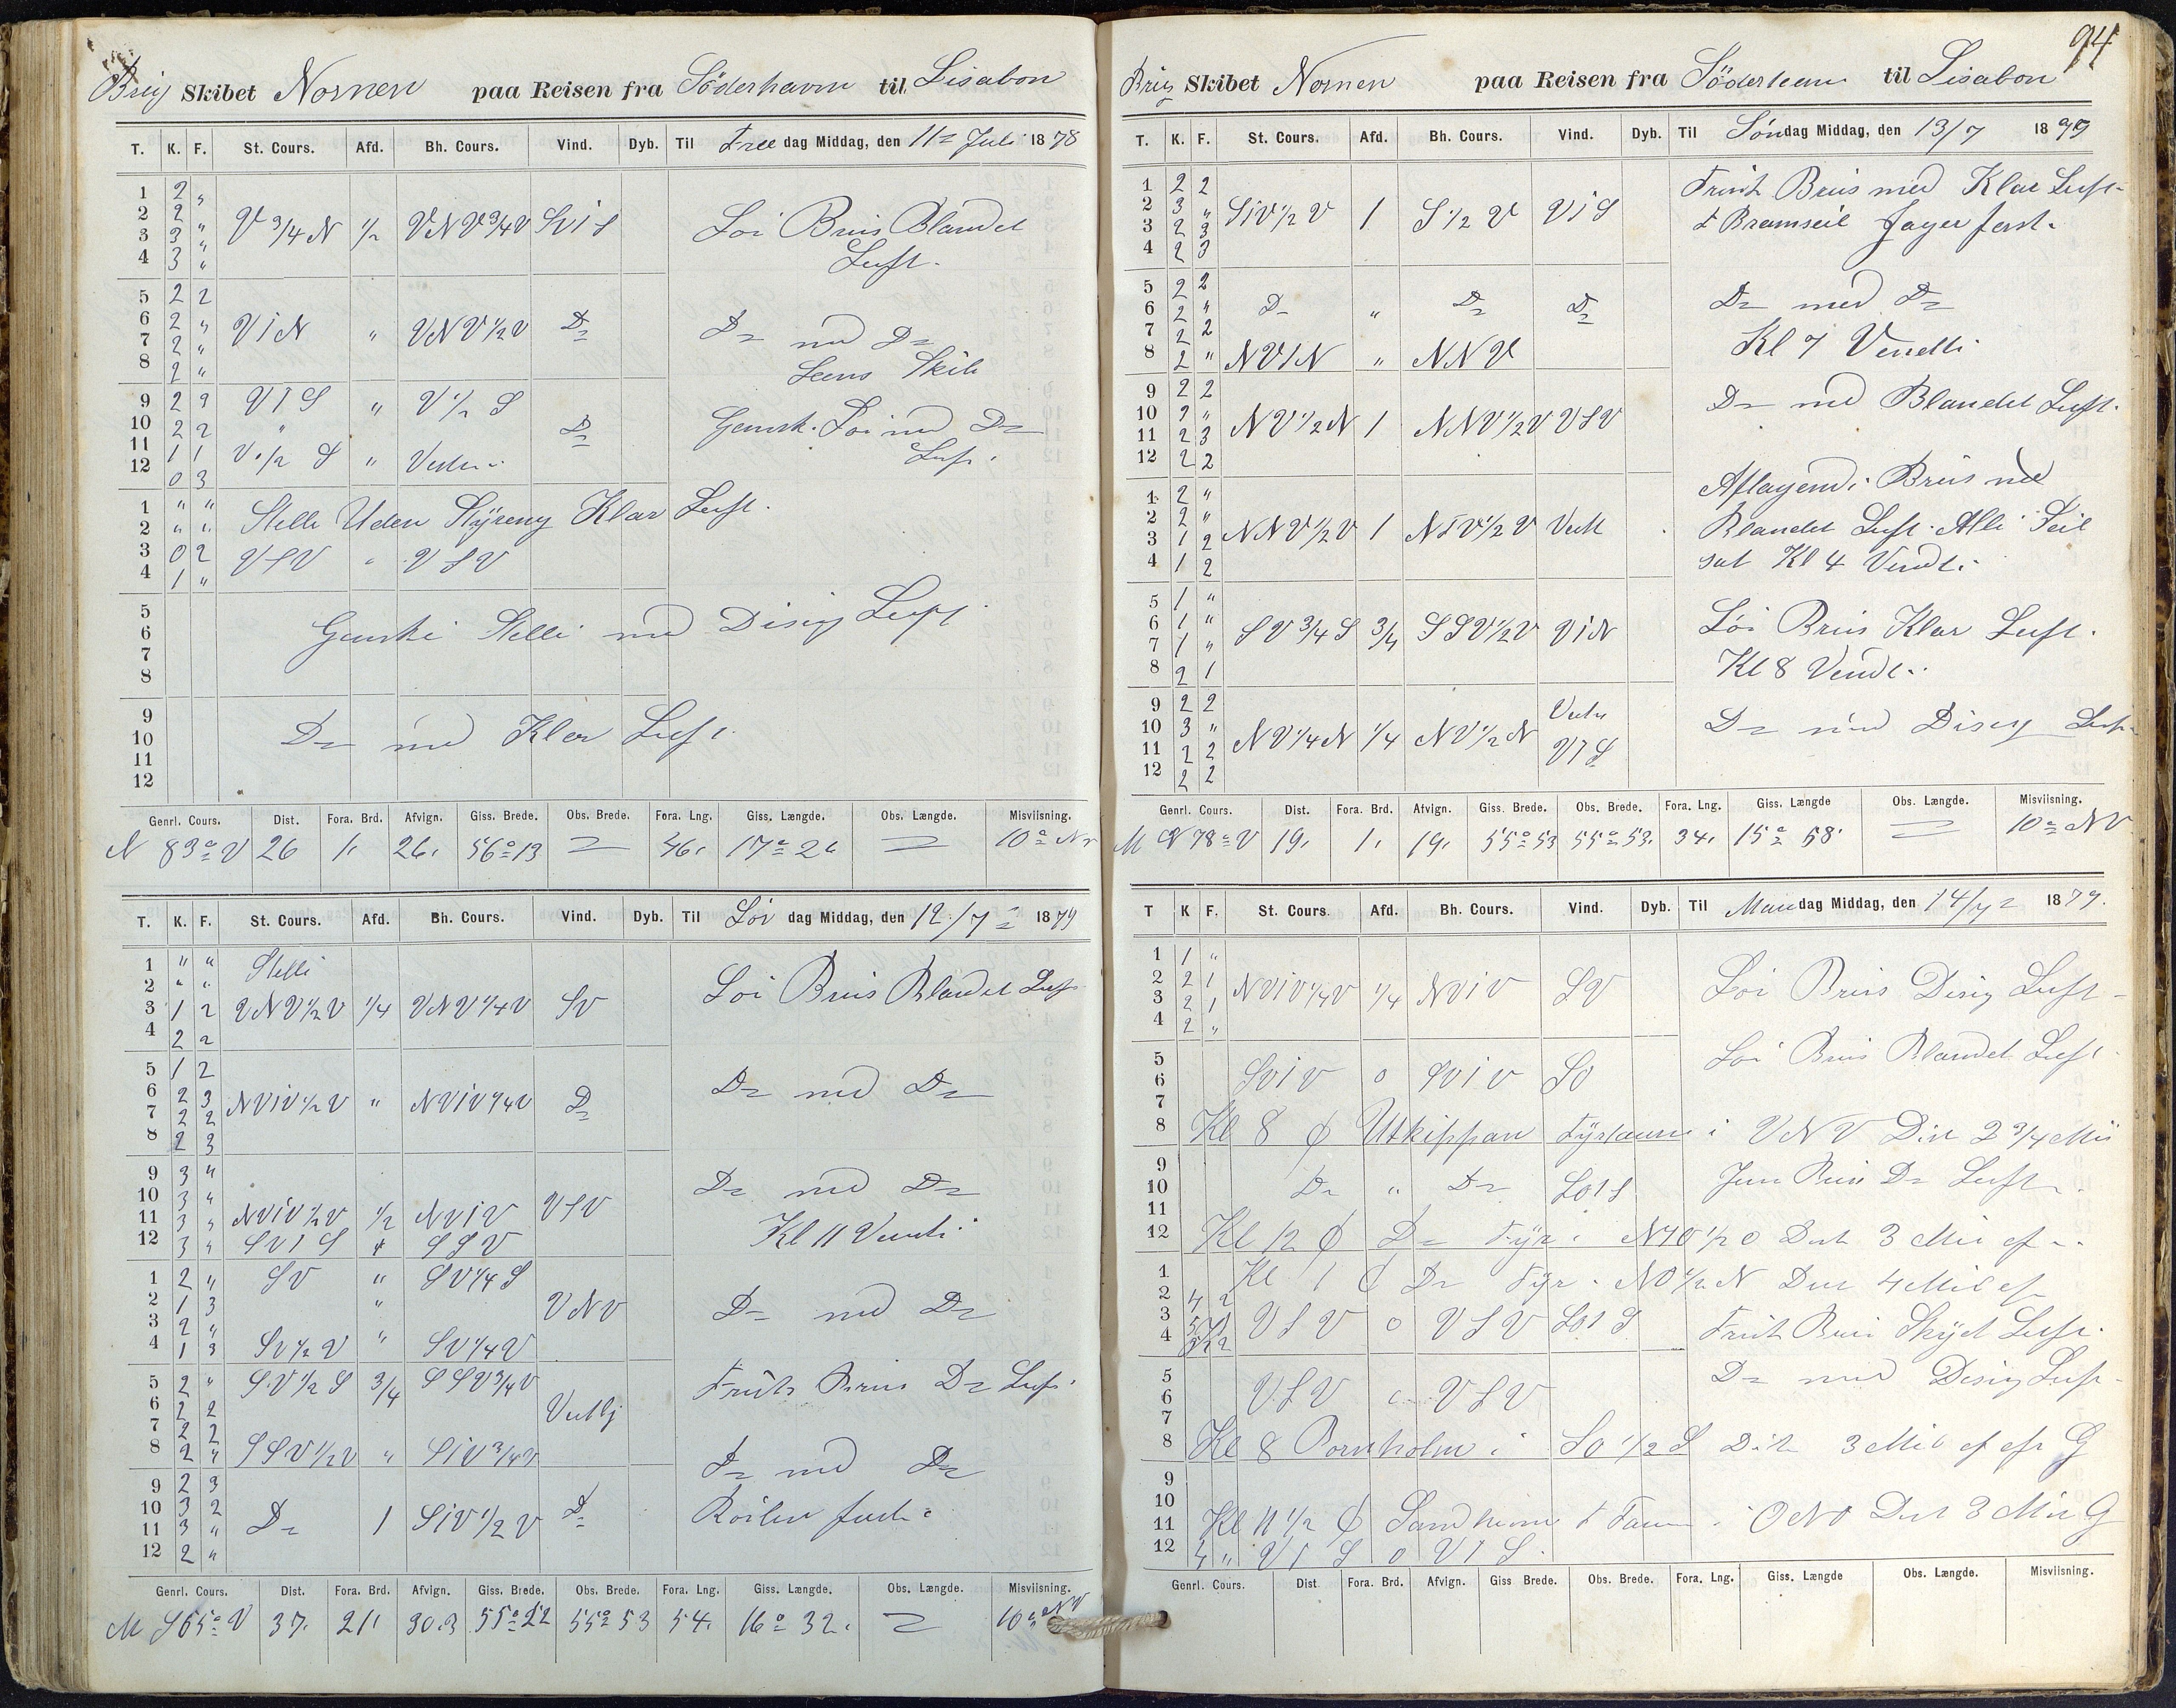 Brig Skibet Nornen paa Reisen fra Söderhavn til Lisabon
T. K. F. St. Cours. Afd. Bh. Cours. Vind. Dyb. Til Fre dag Middag, den 11= Juli 1878
1 2 "
2 2 " V 3/4 N 1/2 VNV 3/4 V SViS Loi Bris Blandet
3 3 "
4 3 " Luft.
5 2 2
6 2 " V1N " VNV 1/2 V D= D= med D=
7 2 "
8 2 " Lens Skib
9 2 2 V1S " V 1/2 S
10 2 2 " D= Gansk. Loi med D=
11 1 1 V 1/2 S " Vesten Luft.
12 0 3
1 " "
2 " " Stelle Uden Styreng Klar Luft.
3 0 2 VSV " VSV
4 1 "
5
6 Ganske Stelle med Disig Luft.
7
8
9
10 D= med Klar Luft.
11
12
Genrl. Cours. Dist. Fora. Brd. Afvign. Giss. Brede. Obs. Brede. Fora. Lng. Giss. Længde. Obs. Længde. Misviisning.
N 83° V 26 1. 26. 56° 13 = 46. 17° 26 = 10°
T. K. F. St. Cours. Afd. Bh. Cours. Vind. Dyb. Til Lör dag Middag, den 12/7 = 1879
1 " " Stelle
2 " " Loi Bris Blandet Luft
3 1 2 VNV 1/2 V 1/4 VNV 1/4 V SV
4 2 2
5 1 2
6 2 3 NViV 1/2 V " NViV 1/4 V D= D= med D=
7 2 2
8 2 3
9 3 "
10 3 " D= med D=
11 3 " NViV 1/2 V 1/2 NViV VSV Kl 11 Vendt
12 3 " SV1S " SSV
1 2 " SV " SV 1/4 S
2 1 3 " VNV D= med D=
3 2 "
4 1 3 SV 1/2 V " SV 1/4 V
5 2 " SV 1/2 S 3/4 SSV 3/4 V Frisk Bris D= Luft.
6 2 2 Vestlj
7 2 2
8 2 " SSV 1/2 V " SiV 3/4 V D= med D=
9 2 3
10 3 2 D= 1 SiV 1/2 V D= Röilen fast.
11 3 "
12 2 "
Genrl. Cours. Dist. Fora. Brd. Afvign. Giss. Brede. Obs. Brede. Fora. Lng. Giss. Længde. Obs. Længde. Misviisning.
M S65° V 37. 21. 30.3 55° 22 55° 53 54. 16° 32. = 10° NV
94
Brig Skibet Nornen paa Reisen fra Söderham til Lisabon
T. K. F. St. Cours. Afd. Bh. Cours. Vind. Dyb. Til Søndag Middag, den 13/7 1879
1 2 2 Frisk Bris med Klar Luft
2 3 " SiV 1/2 V 1 S 1/2 V V1S
3 2 3 Bramseil Jager fast.
4 2 3
5 2 2
6 2 " D= " D= D= D= med D=
7 2 2 Kl 7 Vendt
8 2 " NV1N " NNV
9 2 2 D= med Blandet Luft.
10 2 " NV 1/2 N 1 NNV 1/2 V VSV
11 2 3
12 2 2
1 2 " Aftagend. Bris med
2 2 " NNV 1/2 V 1 NiV 1/2 V Vest Blandet Luft. Alle Seil
3 1 2
4 1 2 sat Kl 4 Vendt.
5 1 "
6 1 " SV 3/4 S 3/4 SSV 1/2 V V1N Löi Bris Klar Luft.
7 1 "
8 2 1 Kl 8 Vendt.
9 2 2 Vesten
10 3 " NV 1/4 N 1/4 NV 1/2 N D= med Disig Luft
11 2 2 V1S
12 2 2
Genrl. Cours. Dist. Fora. Brd. Afvign. Giss. Brede. Obs. Brede. Fora. Lng. Giss. Længde Obs. Længde. Misviisning.
M N 78° V 19. 1. 19. 55° 53 55° 53. 34. 15° 58' = 10° NV
T K F. St. Cours. Afd. Bh. Cours. Vind. Dyb. Til Mandag Middag, den 14/7 = 1879.
1 1 "
2 2 1 NViV 1/4 V 1/4 NViV SV Loi Bris Disig Luft
3 2 1
4 2 "
5 Loi Bris Blandet Luft.
6 SViV 0 SViV SO
7
8 Kl 8 Utkippan Fyrtaarn i VNV Dist 2 3/4 Mil
9
10 D= " D= SO1S Jevn Bris D= Luft
11
12 Kl 12 D= Fyr i N1O 1/2 O Dist 3 Mil
1 Kl 1 D= Fyr. NO 1/2 N Dist 4 Mil
2 4 2
3 VSV 0 VSV SO1S Frisk Bris Skyet Luft.
4
5 D= med Disig Luft
6 VSV 0 VSV
7
8 Kl 8 Bornholm i SO 1/2 S Dist 3 Mil G
9
10
11 Kl 11 1/2 Sandham Taarn i ONO Dist 3 Mil G
12 4 " V1S 0 V1S.
Genrl. Cours. Dist Fora. Brd. Afvign. Giss Brede. Obs. Brede. Fora. Lng. Giss. Længde Obs. Længde. Misviisning.